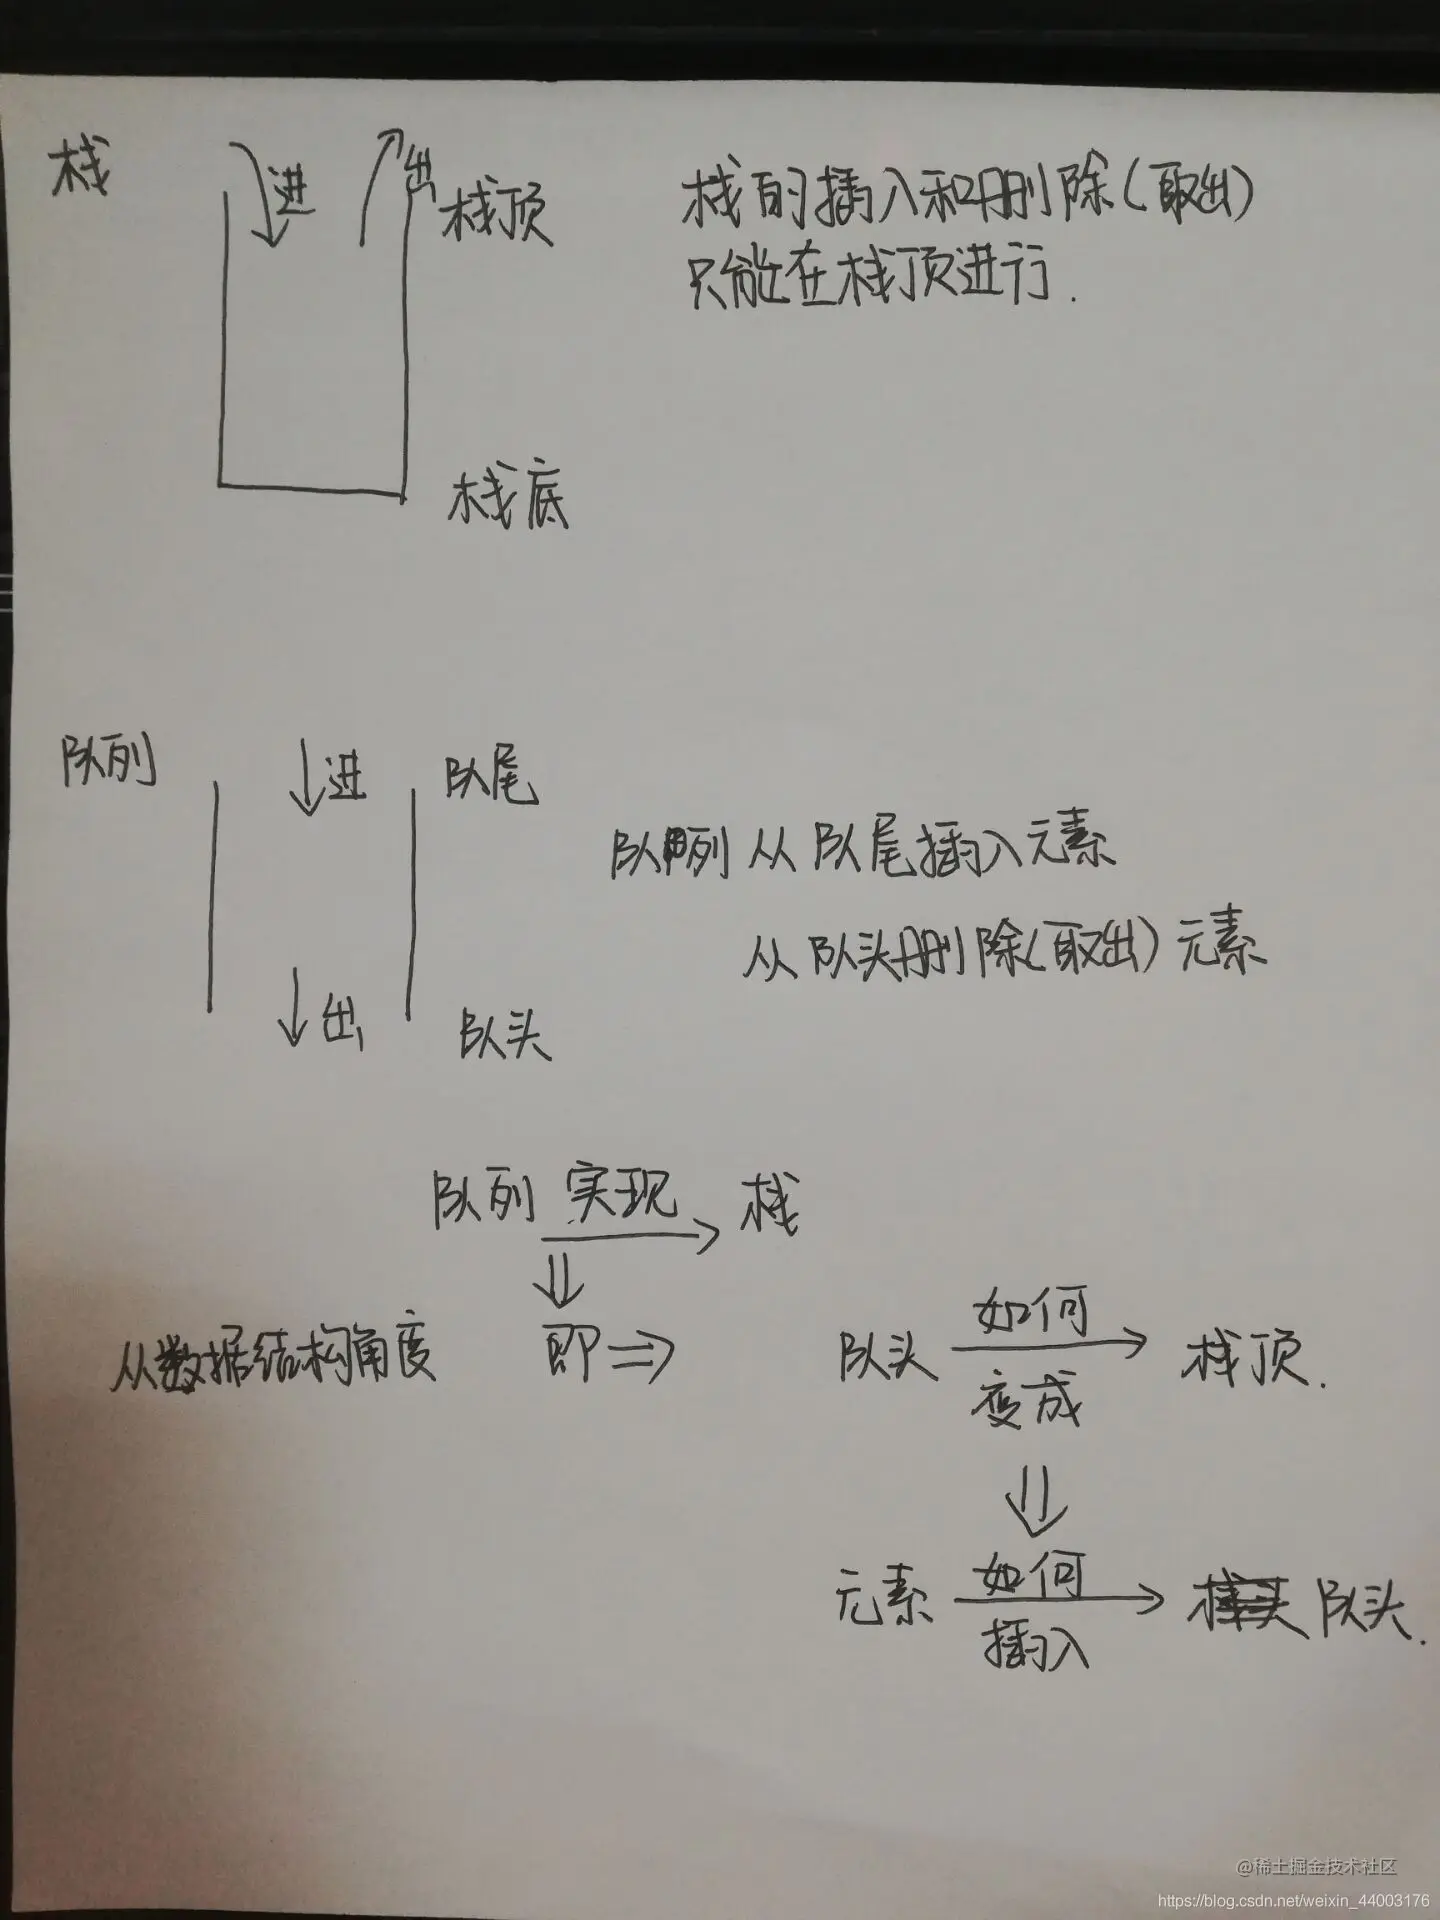 栈
进
出
栈顶
栈的插入和删除(取出)
只能在栈顶进行.
栈底
队列
进
队尾
队列 从队尾插入元素
从队头删除(取出)元素
出
队头
队列 实现 栈
从数据结构角度 即 队头 如何 变成 栈顶.
元素 如何 插入 队头.
@稀土掘金技术社区
https://blog.csdn.net/weixin_44003176